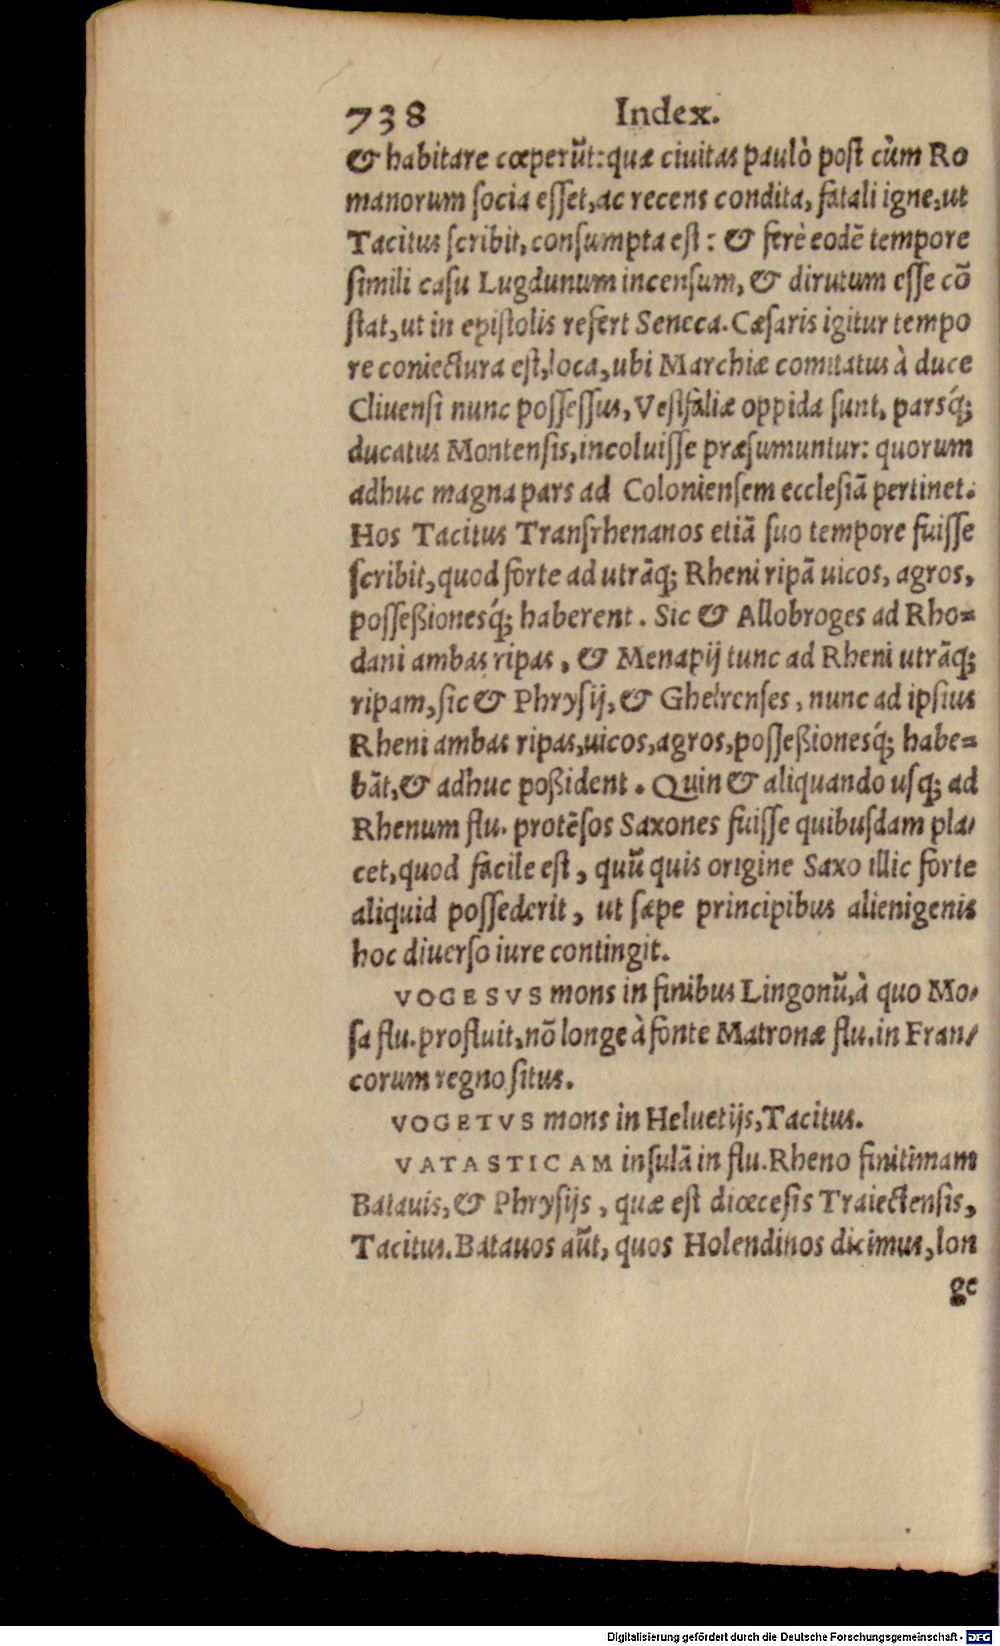 738 Index.
& habitare cœperũt: quæ ciuitas paulò post cùm Ro
manorum socia esset, ac recens condita, fatali igne, ut
Tacitus scribit, consumpta est: & ferè eodẽ tempore
simili casu Lugdunum incensum, & dirutum esse cõ
stat, ut in epistolis refert Seneca. Cæsaris igitur tempo
re coniectura est, loca, ubi Marchiæ comitatus à duce
Cliuensi nunc possessus, Vestfaliæ oppida sunt, parsq́;
ducatus Montensis, incoluisse præsumuntur: quorum
adhuc magna pars ad Coloniensem ecclesiã pertinet.
Hos Tacitus Transrhenanos etiã suo tempore fuisse
scribit, quod forte ad utrãq; Rheni ripã uicos, agros,
posseßionesq́; haberent. Sic & Allobroges ad Rho=
dani ambas ripas, & Menapij tunc ad Rheni utrãq;
ripam, sic & Phrysij, & Ghelrenses, nunc ad ipsius
Rheni ambas ripas, uicos, agros, posseßionesq́; habe=
bãt, & adhuc poßident. Quin & aliquando usq; ad
Rhenum flu. protẽsos Saxones fuisse quibusdam pla/
cet, quod facile est, quũ quis origine Saxo illic forte
aliquid possederit, ut sæpe principibus alienigenis
hoc diuerso iure contingit.
VOGESVS mons in finibus Lingonũ, à quo Mo/
sa flu. profluit, nõ longe à fonte Matronæ flu. in Fran/
corum regno situs.
VOGETVS mons in Heluetijs, Tacitus.
VATASTICAM insulã in flu. Rheno finitimam
Batauis, & Phrysijs, quæ est diœcesis Traiectensis,
Tacitus. Batauos aũt, quos Holendinos dicimus, lon
ge
Digitalisierung gefördert durch die Deutsche Forschungsgemeinschaft - DFG